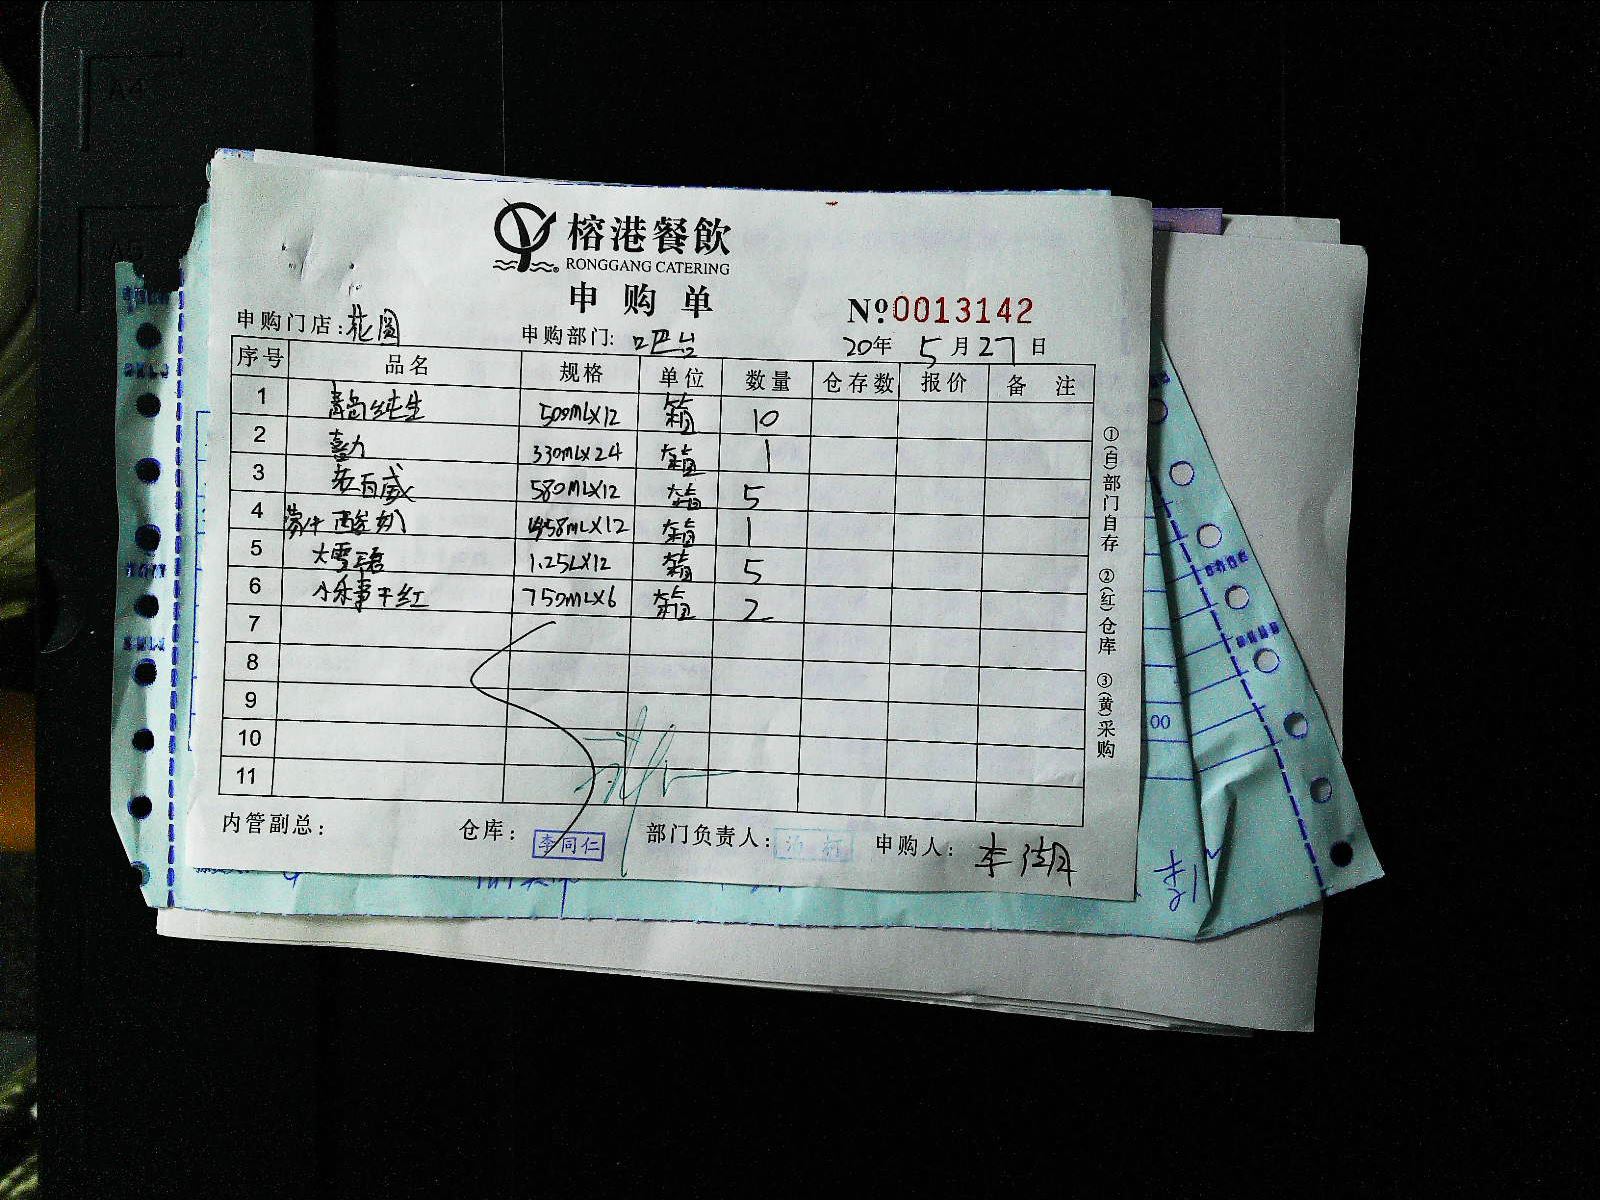 榕港餐飲
RONGGANG CATERING
申购单
№0013142
申购门店:花园 申购部门:吧台 20年5月27日
序号 品名 规格 单位 数量 仓存数 报价 备注
1 青岛纯生 500mLX12 箱 10
2 喜力 330mLX24 箱 1
3 老百威 580mLX12 箱 5
4 蒙牛酸奶 458mLX12 箱 1
5 大雪碧 1.25LX12 箱 5
6 小乐事干红 750mLX6 箱 2
7
8
9
10
11
①(白)部门自存 ②(红)仓库 ③(黄)采购
内管副总: 仓库: 李同仁 部门负责人: 申购人: 李
00